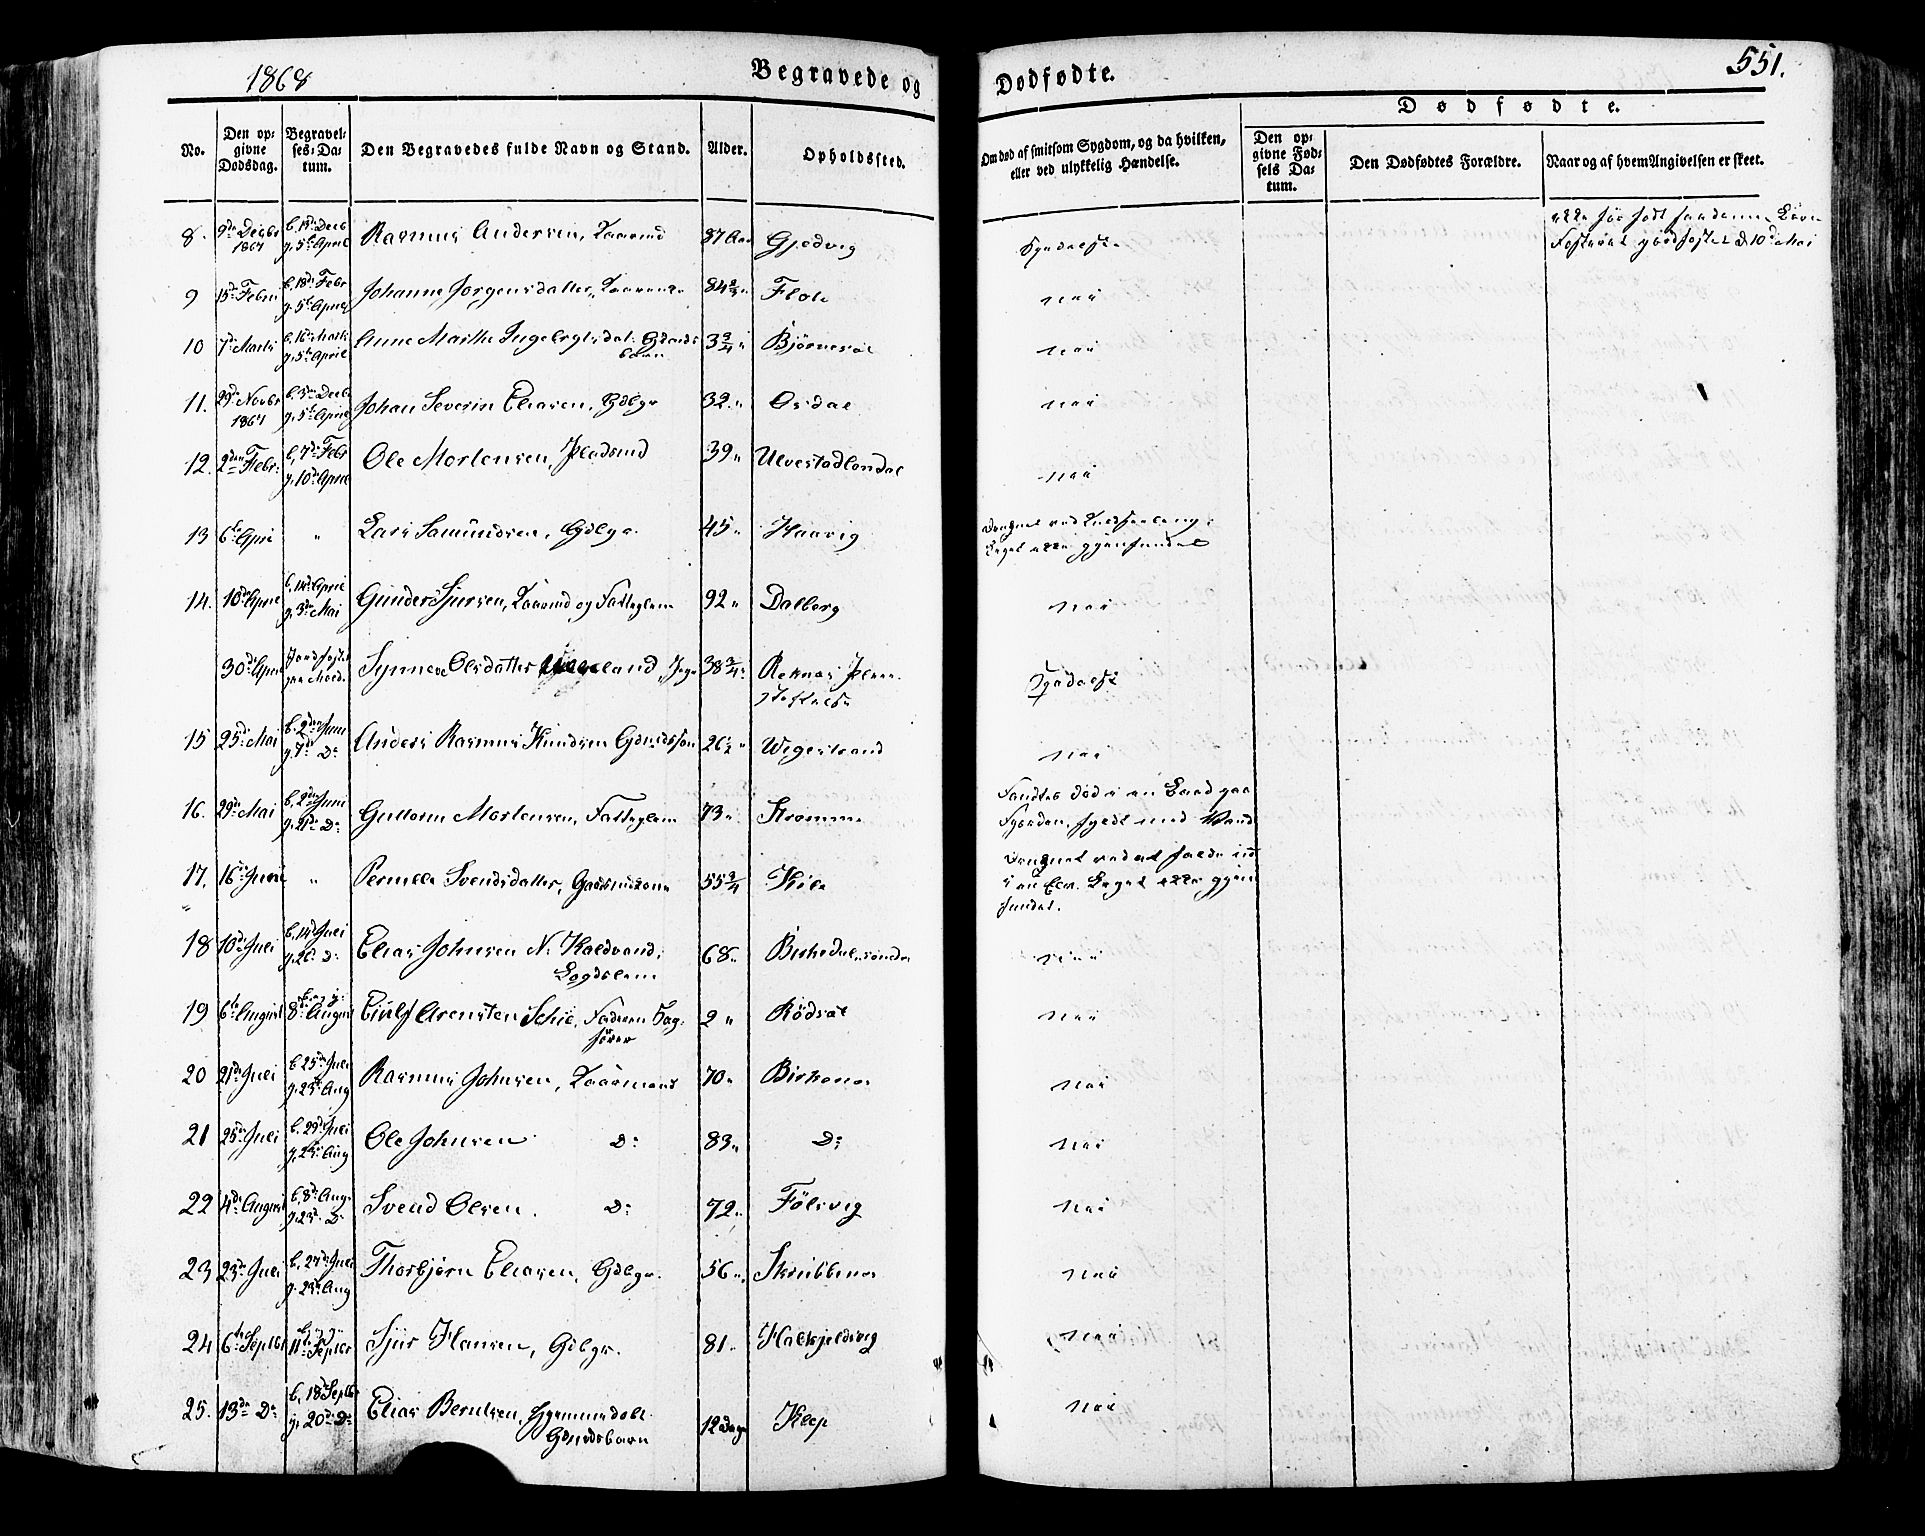 1868
Begravede og
Dødfødte.
551.
No.
Den opgivne Dødsdag.
Begravelses-Datum.
Den Begravedes fulde Navn og Stand.
Alder.
Opholdssted.
Om død af smitsom Sygdom, og da hvilken, eller ved ulykkelig Hændelse.
Dødfødte.
Den opgivne Fødsels Datum.
Den Dødfødtes Forældre.
Naar og af hvem Angivelsen er skeet.
8. 9de Decbr 1867 g. 5te April Rasmus Andersen, Kaarmd 87 Aar Gjedvig Spedalsk
9 15de Febr b. 18de Febr g. 5te April Johanne Jørgensdatter, 84 Flole nei
10 7de Marts b. 16de Marts g. 5te April Anne Marthe Ingebrgtsdat. Gdmds barn 3 3/4 " Bjørnesæt nei
11. 29de Novbr 1867 b. 3die Decbr g. 5te April Johan Severin Eliasen, Gdbgr 32 " Osdal nei
12. 2den Febr. b. 7de Febr g. 10de April Ole Mortensen, Pladsmd 39 " Ulvestadlendal nei
13 6te April " Lars Samundsen, Gdbgr. 45 " Haavig Druknet ved
Liget ikke gjenfundet
14. 10de April b. 14de April g. 3die Mai Gunder Sjursen, Kaarmd og Fattiglem 92 " Dalberg nei
30de April Jordfæstet Synneve Olsdatter land, 38 3/4 " Reknes Pleiestiftelse Spedalsk
15 25de Mai b. 2den Juni g. 7de Do Anders Rasmus Knudsen Gdmdssøn 26 1/2 " Wegestrand nei
16. 29de Mai b. 2den Juni g. 21de Do Guttorm Mortensen, Fattiglem 73 " Kromme Fandtes død i en Baad paa
Fjorden, fyldt med Vand
17. 16de Juni " Pernille Svendsdatter, Gaardmdkone 55 3/4 Kile Druknet ved at falde ud
i en Elv. Liget ikke gjenfundet.
18 10de Juli b. 14de Juli g. 26. Do Elias Johnsen N. Kaldvand, Lægdslem 68 " Birkedal nei
19 6te August 8de August Eiulf Arentsen Schie, Faderen Sagfører 2 " Rødsæt nei
20 21de Juli b. 25de Juli g. 23de Aug Rasmus Johnsen, Kaarmand 70 " Birkenes nei
21 25de Juli b. 29de Juli g. 23de Aug Ole Johnsen Do 83 " Do nei
22 4de August b. 8de Aug. g. 23de Do Svend Olsen. Do 72 " Følsvig nei
23 23de Juli b. 27de Juli g. 23de Aug Thorbjørn Eliasen, Gdbgr. 56 " Skrubbenes nei
24 6te Septbr 11te Septbr Sjur Hansen, Gdbgr. 81 " Halkjelsvig nei
25. 13de Do b. 18de Septb g. 20de Do Elias Berntsen, Gdmdsbarn 12 Dage Klep nei